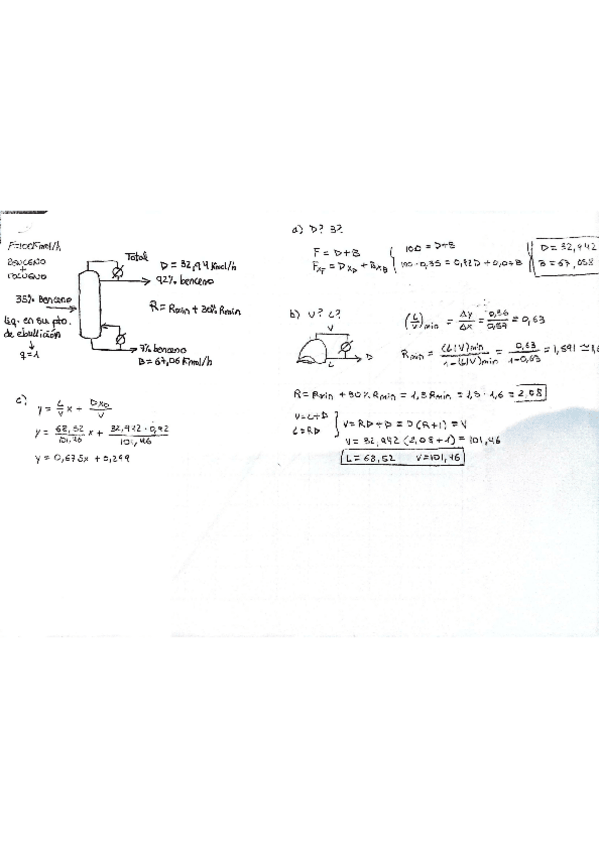 F=100Kmol/h
BENCENO
+
TOLUENO
35% Benceno
liq. en su pto.
de ebullición
↓
q=1
Total
D = 32,94 Kmol/h
92% benceno
R = Rmin + 30% Rmin
7% benceno
B = 67,06 Kmol/h
a) D? B?
F = D+B
100 = D+B
100·0,35 = 0,92D + 0,07B
D = 32,942
B = 67,058
b) V? L?
V
L
D
(L/V)min = Δy/Δx = = 0,63
Rmin = (L/V)min / 1-(L/V)min = 0,63 / 1-0,63 = 1,691 ≃ 1,6
R = Rmin + 30% Rmin = 1,3 Rmin = 1,3 · 1,6 = 2,08
V = L+D
L = RD
V = RD + D = D(R+1) = V
V = 32,942 (2,08+1) = 101,46
L = 68,52 V = 101,46
c)
y = L/V x + DxD/V
y = 68,52/101,46 x + 32,942 · 0,92/101,46
y = 0,675x + 0,299